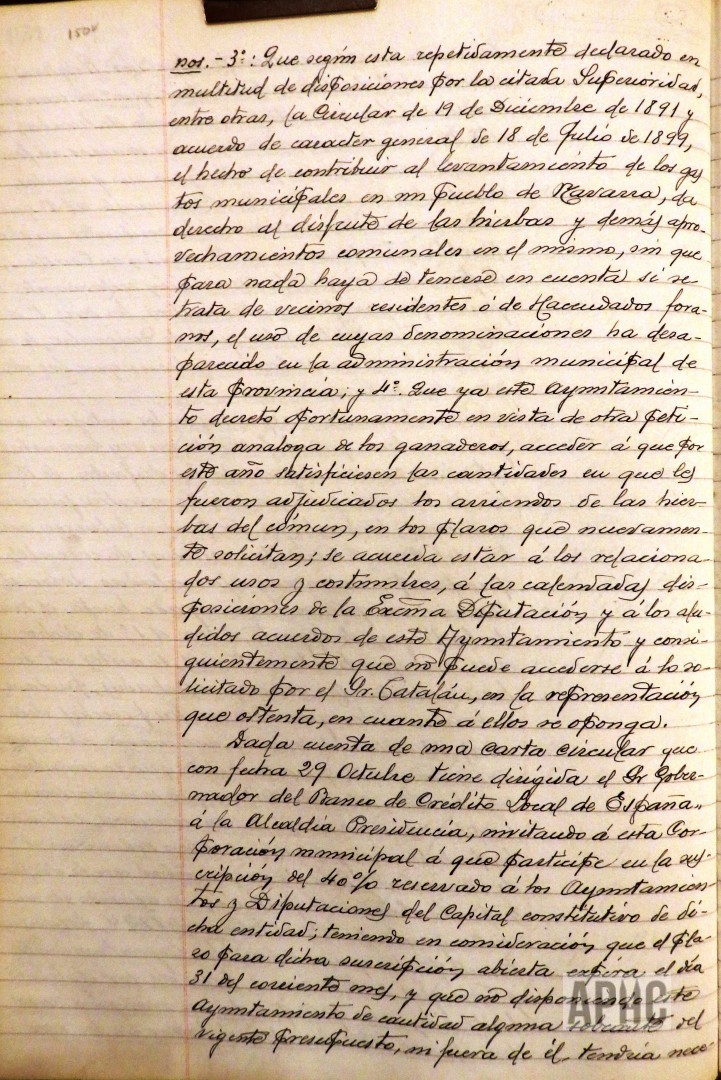 1504
nos.- 3º: Que según esta repetidamente declarado en
multitud de disposiciones por la citada Superioridad,
entre otras, la Circular de 19 de Diciembre de 1891 y
acuerdo de caracter general de 18 de Julio de 1899,
el hecho de contribuir al levantamiento de los gas
tos municipales en un pueblo de Navarra, da
derecho al disfrute de las hierbas y demás apro-
vechamientos comunales en el mismo, sin que
para nada haya de tenerse en cuenta si se
trata de vecinos residentes ó de Hacendados fora-
nos, el uso de cuyas denominaciones ha desa-
parecido en la administración municipal de
esta provincia; y 4º. Que ya este Ayuntamien-
to decretó oportunamente en vista de otra peti-
ción analoga de los ganaderos, acceder á que por
este año satisficiesen las cantidades en que les
fueron adjudicados los arriendos de las hier-
bas del cómun, en los plazos que nuevamen-
te solicitan; se acuerda estar á los relaciona-
dos usos y costumbres, á las calendadas dis-
posiciones de la Excma Diputación y á los alu-
didos acuerdos de este Ayuntamiento y consi-
guientemente que no puede accederse á lo so-
licitado por el Sr. Catalán, en la representación
que ostenta, en cuanto á ellos se oponga.
Dada cuenta de una carta circular que
con fecha 29 Octubre tiene dirigida el Sr Gober-
nador del Banco de Crédito Local de España"
á la Alcaldía Presidencia, invitando á esta Cor-
poración municipal á que participe en la sus-
cripción del 40% reservado á los Ayuntamien-
tos y Diputaciones del Capital constitutivo de di-
cha entidad; teniendo en consideración que el pla-
zo para dicha suscripción abierta expira el día
31 del corriente mes, y que no disponiendo este
Ayuntamiento de cantidad alguna sobrante del
vigente presupuesto, ni fuera de él, tendría nece
APHC